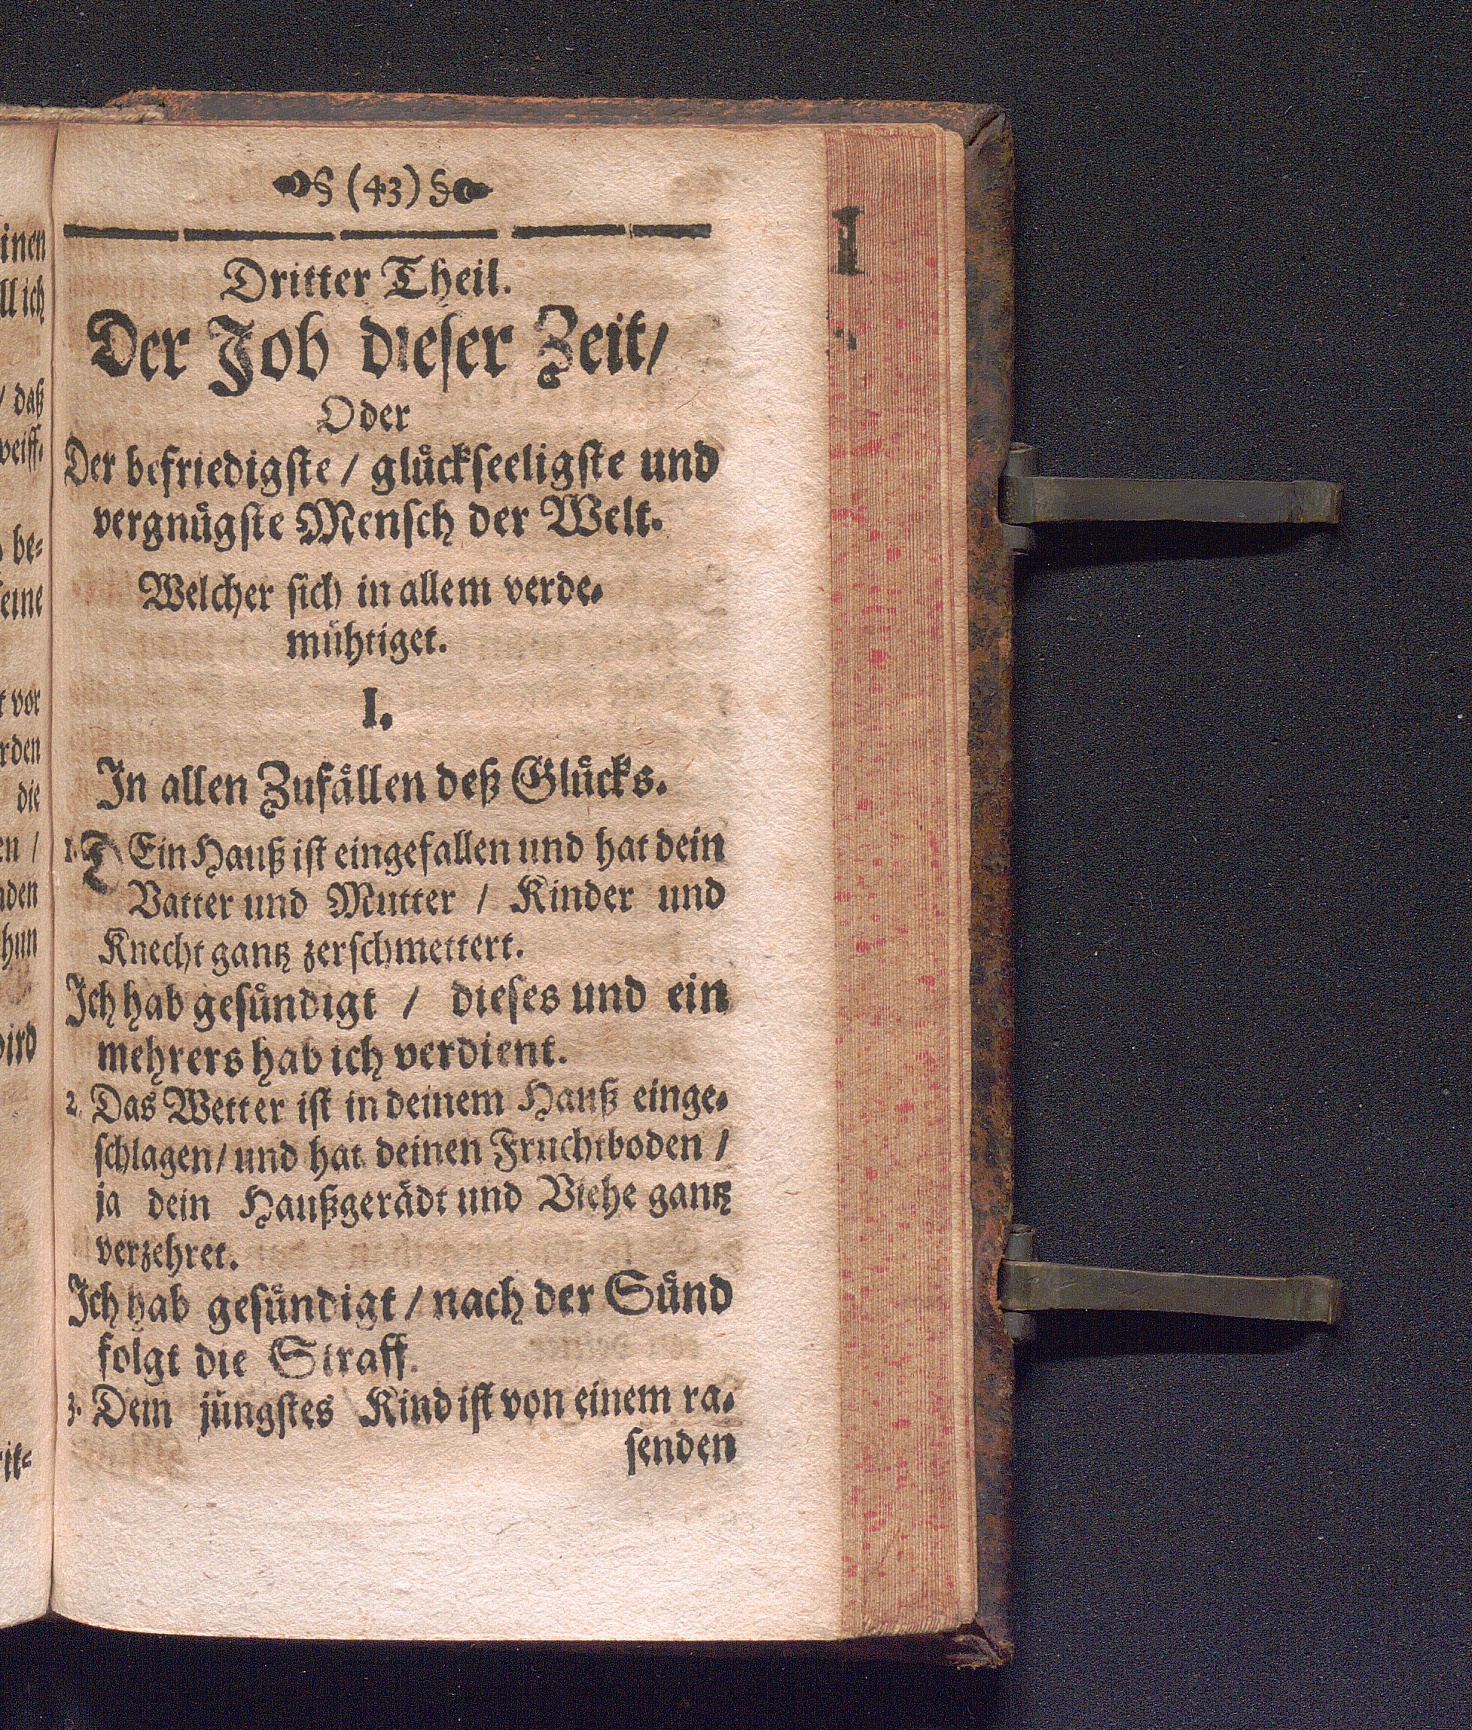 § (43) §
Dritter Theil.
Der Job dieser Zeit/
Oder
Der befriedigste / glückseeligste und
vergnügste Mensch der Welt.
Welcher sich in allem verde-
mühtiget.
I.
In allen Zufällen deß Glücks.
1. DEin Hauß ist eingefallen und hat dein
Vatter und Mutter / Kinder und
Knecht gantz zerschmettert.
Ich hab gesündigt / dieses und ein
mehrers hab ich verdient.
2. Das Wetter ist in deinem Hauß einge-
schlagen/ und hat deinen Fruchtboden /
ja dein Haußgerädt und Viehe gantz
verzehret.
Ich hab gesündigt / nach der Sünd
folgt die Straff.
3. Dein jüngstes Kind ist von einem ra-
senden